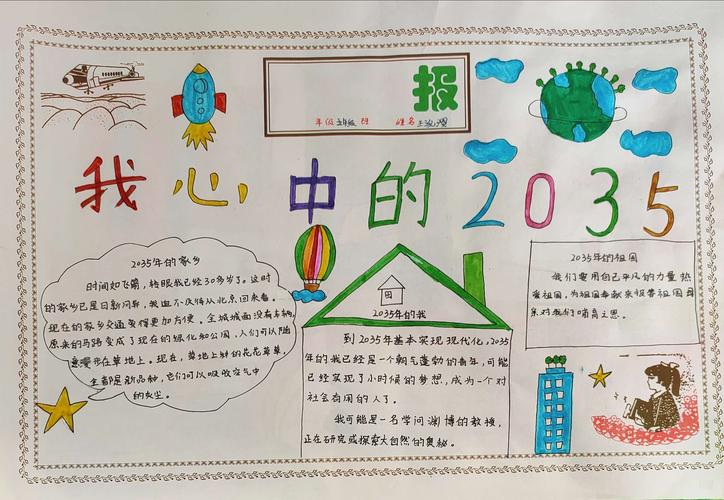 报
年级 五年级 班 姓名 王
我心中的2035
2035年的家乡
时间如飞箭，转眼我已经30多岁了。这时
的家乡已是日新月异，我迫不及待从北京回来看。
现在的家乡交通变得更加方便。全城城面没有车辆，
原来的马路变成了现在的绿化和公园，人们可以随
意漫步在草地上。现在，草地上种的花花草草，
全都是新品种，它们可以吸收空气中
的灰尘。
2035年的我
到2035年基本实现现代化，2035
年的我已经是一个朝气蓬勃的青年，可能
已经实现了小时候的梦想，成为一个对
社会有用的人了。
我可能是一名学问渊博的教授，
正在研究或探索大自然的奥秘。
2035年的祖国
我们要用自己平凡的力量热
爱祖国，为祖国奉献来报答祖国母
亲对我们哺育之恩。